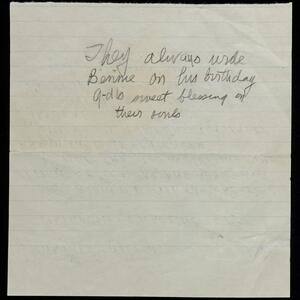 They always wrote
Bennie on his birthday
G-d's sweet blessing on
their souls